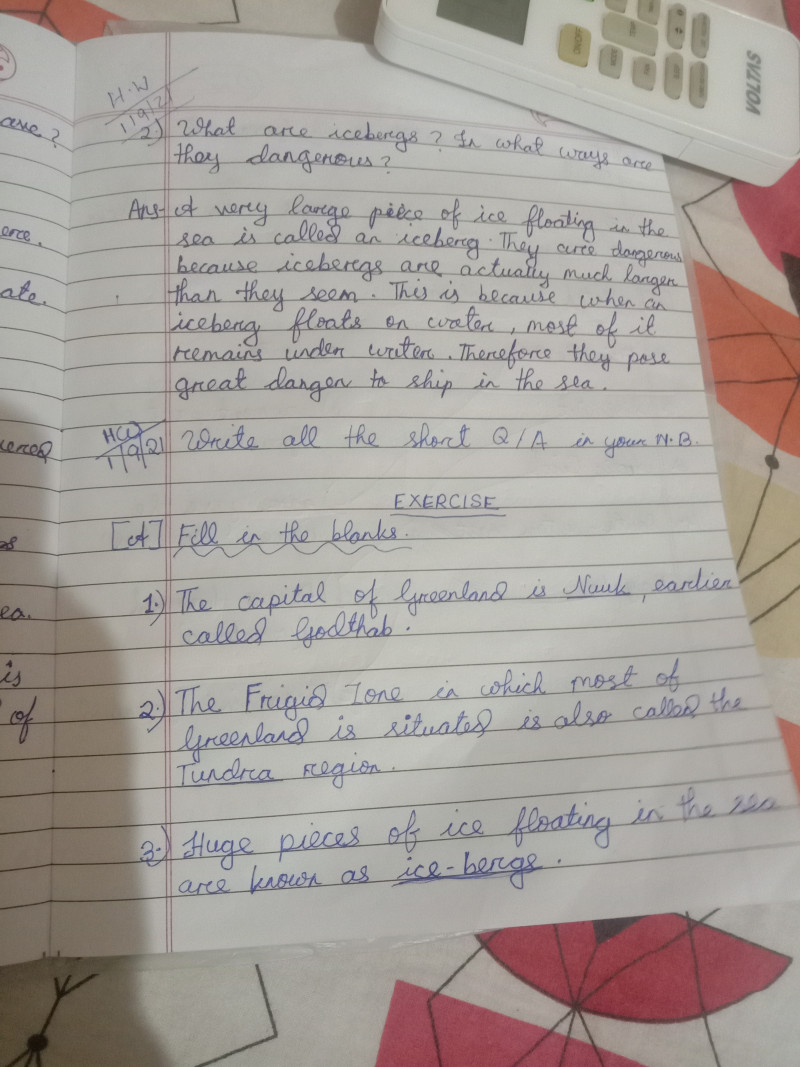 are?
erce.
ate.
as
ea.
is
of
H.W
1/9/21
2) What are icebergs? In what ways are
they dangerous?
Ans- A very large piece of ice floating in the
sea is called an iceberg. They are dangerous
because icebergs are actually much larger
than they seem. This is because when an
iceberg floats on water, most of it
remains under water. Therefore they pose
great danger to ship in the sea.
HW
1/9/21 Write all the short Q/A in your N.B.
EXERCISE
[A] Fill in the blanks.
1.) The capital of Greenland is Nuuk, earlier
called Godthab.
2.) The Frigid Zone in which most of
Greenland is situated is also called the
Tundra region.
3.) Huge pieces of ice floating in the sea
are known as ice-bergs.
VOLTAS